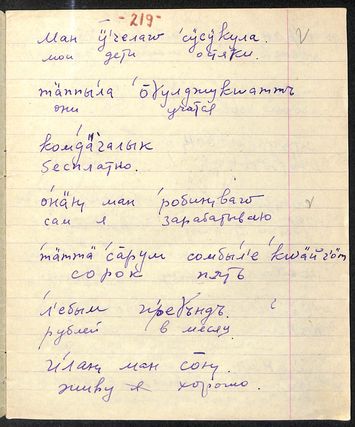 - 219 -
Ман ӱ́челаw сӱсӱкула.
мои дети остяки.
тӓппы́ла о̄ӷулджукwаттъ
они учатся
комдӓ́чалык
бесплатно.
о́нӓӊ ман робинывāw
сам я зарабатываю
тӓ́ттӓ сāрум сомбыл'е
сорок пять
л'ебым ирeӷындъ.
рублей в месяц.
и́лаӊ ман сōӊ.
живу я хорошо.